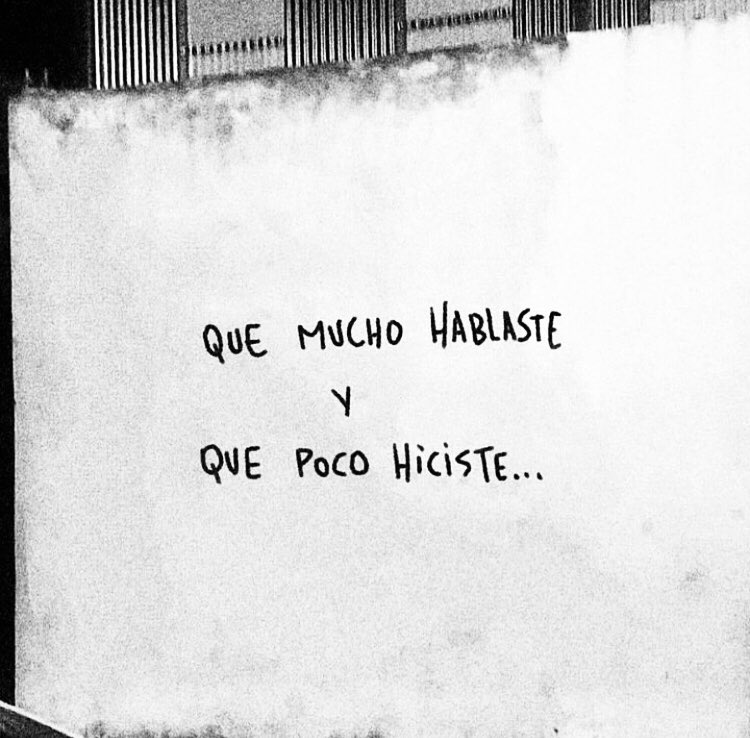 QUE MUCHO HABLASTE
Y
QUE POCO HICISTE...